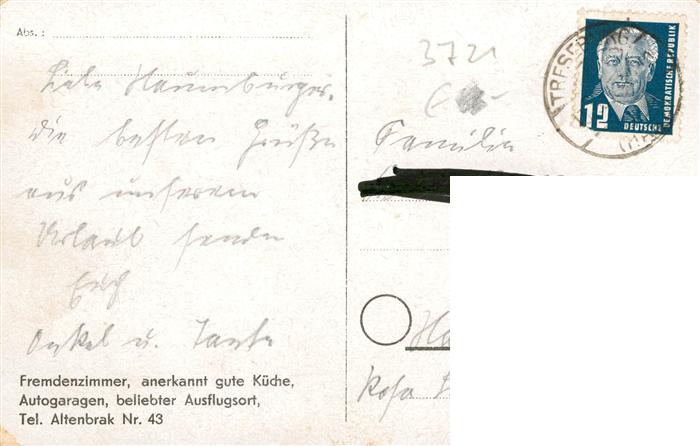 Abs.:
Liebe Naumburger.
Die besten Grüße
aus unserem
Urlaub senden
Euch
Onkel u. Tante
Fremdenzimmer, anerkannt gute Küche,
Autogaragen, beliebter Ausflugsort,
Tel. Altenbrak Nr. 43
3721
Familie
TRESEB
12
DEUTSCHE
DEMOKRATISCHE REPUBLIK
Rosa